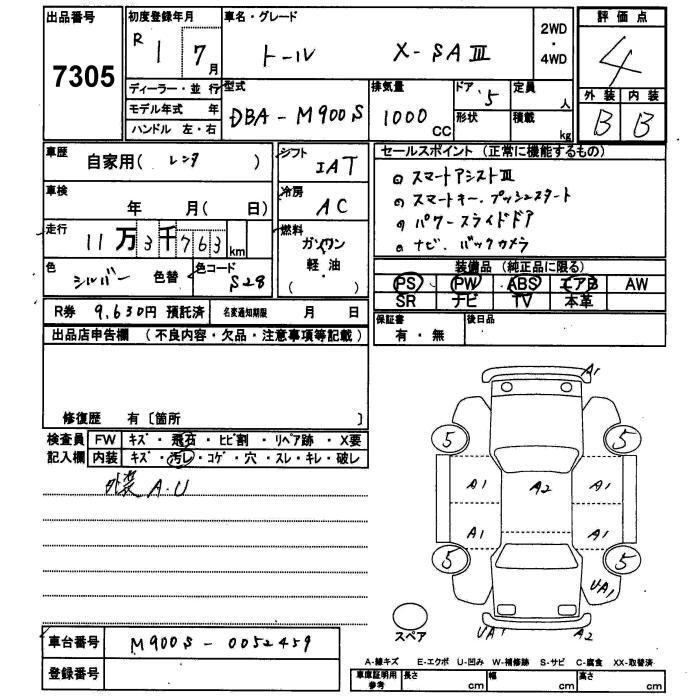 出品番号 初度登録年月 車名・グレード 2WD・4WD 評価点
7305 R 1 7月 トール X-SAⅢ 4
ディーラー・並行 型式 排気量 ドア 5 定員 人 外装 内装
モデル年式 年 DBA-M900S 1000CC 形状 積載 kg B B
ハンドル 左・右
車歴 自家用( レンタ ) シフト IAT セールスポイント (正常に機能するもの)
車検 年 月( 日) 冷房 AC
スマートアシストⅢ
スマートキー.プッシュスタート
パワースライドドア
ナビ.バックカメラ
走行 11万3千763km 燃料 ガソリン 軽・油 ( )
色 シルバー 色替 色コード S28
装備品 (純正品に限る)
PS PW ABS エアB AW
SR ナビ TV 本革
R券 9,630円 預託済 名変通知期限 月 日
保証書 有・無 後日品
出品店申告欄 (不良内容・欠品・注意事項等記載)
修復歴 有〔箇所 〕
検査員 FW キズ・飛石・ヒビ割・リペア跡・X要
記入欄 内装 キズ・汚レ・コゲ・穴・スレ・キレ・破レ
外装 A.U
A1
5 5
A1 A2 A1
A1 A1
5 5
UA1
UA1 A2
スペア
車台番号 M900S-0052459
登録番号
A-線キズ E-エクボ U-凹み W-補修跡 S-サビ C-腐食 XX-取替済
車庫証明用参考 長さ cm 幅 cm 高さ cm